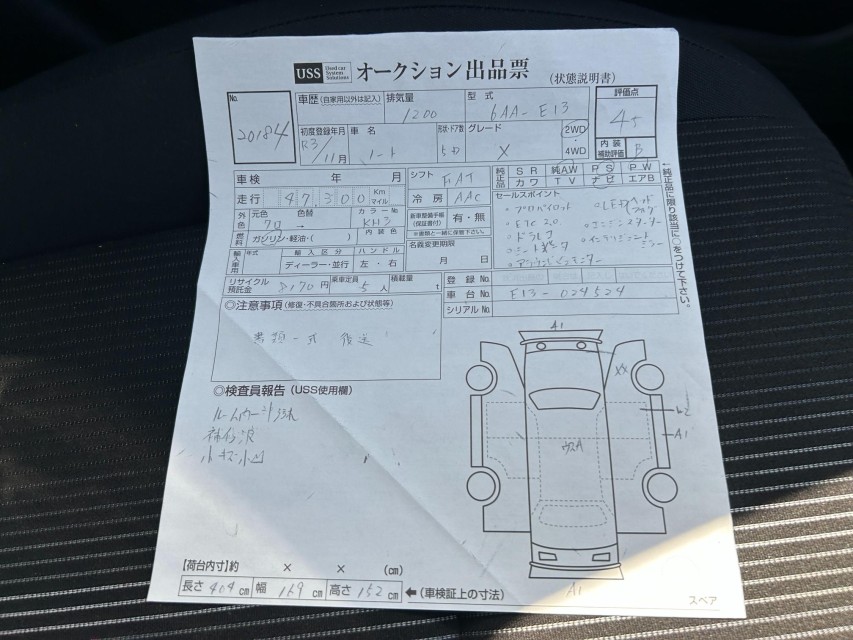 USS Used car System Solutions オークション出品票 (状態説明書)
No. 20184
車歴 (自家用以外は記入) 排気量 1200 型式 6AA-E13 評価点 4.5
初度登録年月 R3/11月 車名 ノート 形状・ドア数 5D グレード X 2WD 4WD 内装補助評価 B
車検 年 月 シフト FAT 純正品 SR 純AW PS PW
カワ TV ナビ エアB
走行 47,300 Km マイル 冷房 AAC セールスポイント
外色 元色 色替 → カラーNo KH3 新車整備手帳(保証書付) 有・無
※書類と一緒に保管下さい。
・プロパイロット ・LEDヘッド フォグ
燃料 ガソリン・軽油・( ) 内装色 名義変更期限 月 日
・ETC2.0 ・エンジンスターター
・ドラレコ
輸入車用 年式 輸入区分 ディーラー・並行 ハンドル 左・右
←純正品に限り該当に○をつけて下さい。
リサイクル預託金 円 乗車定員 5人 積載量 t
登録No.
車台No. E13-024524
シリアルNo.
◎注意事項 (修復・不具合箇所および状態等)
書類一式 後送
◎検査員報告 (USS使用欄)
小キズ小凹
A1
XX
A1
ウスA
A1
【荷台内寸】約 × × (cm)
長さ 404 cm 幅 169 cm 高さ 152 cm ←(車検証上の寸法)
スペア